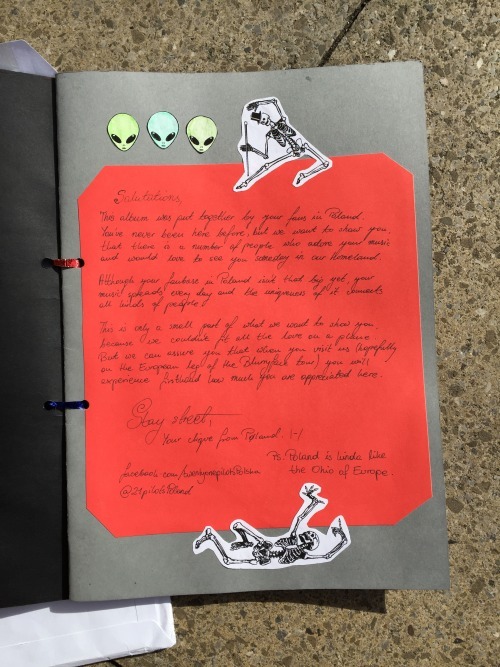 Salutations,
This album was put together by your fans in Poland.
You've never been here before, but we want to show you,
that there is a number of people who adore your music
and would love to see you someday in our homeland.
Although your fanbase in Poland isn't that big yet, your
music spreads every day and the uniqueness of it connects
all kinds of people.
This is only a small part of what we want to show you,
because we couldn't fit all the love on a plane.
But we can assure you that when you visit us (hopefully
on the European leg of the Blurryface tour) you will
experience firsthand how much you are appreciated here.
Stay street,
Your clique from Poland. |-/
Ps. Poland is kinda like
the Ohio of Europe.
facebook.com/twentyonepilotsPolska
@21pilotsPoland